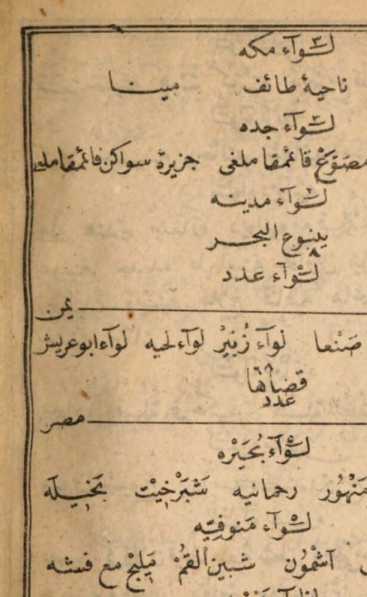 لوآء مكه
ناحیۀ طائف مینا
لوآء جده
مصوع قائمقاملغی جزیرۀ سواكن قائمقاملغی
لوآء مدینه
ینبوع البحر
لوآء عدد
یمن
صَنْعا لوآء زُبَیْر لوآء لحیه لوآء ابوعریش
قضاها
عدد
مصر
لوآء بُحَیْرَه
منهور رحمانیه شَبَرْخِیْت نخیله
لوآء مَنوفیّه
آشْمُوُن شبین القُمْ مَلیجْ مع فیشه